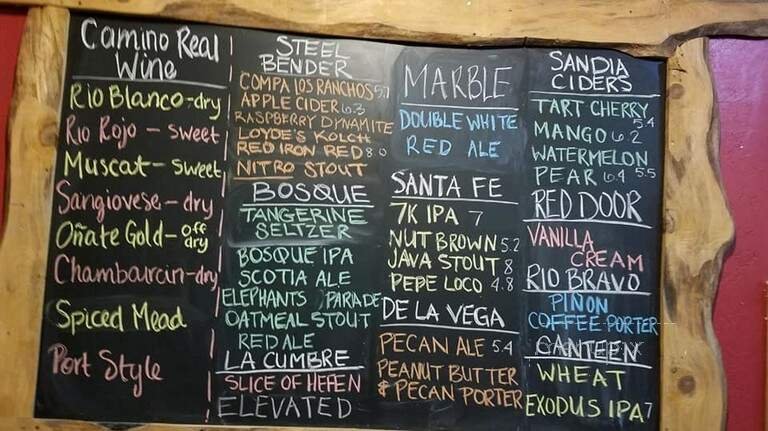 Camino Real
Wine
Rio Blanco-dry
Rio Rojo - sweet
Muscat - sweet
Sangiovese - dry
Oñate Gold - off dry
Chambourcin-dry
Spiced Mead
Port Style
STEEL
BENDER
COMPA LOS RANCHOS 5.7
APPLE CIDER 6.3
RASPBERRY DYNAMITE
LOYDE'S KOLCH
RED IRON RED 8.0
NITRO STOUT
BOSQUE
TANGERINE
SELTZER
BOSQUE IPA
SCOTIA ALE
ELEPHANTS PARADE
OATMEAL STOUT
RED ALE
LA CUMBRE
SLICE OF HEFEN
ELEVATED
MARBLE
DOUBLE WHITE
RED ALE
SANTA FE
7K IPA 7
NUT BROWN 5.2
JAVA STOUT 8
PEPE LOCO 4.8
DE LA VEGA
PECAN ALE 5.4
PEANUT BUTTER
& PECAN PORTER
SANDIA
CIDERS
TART CHERRY
5.4
MANGO 6.2
WATERMELON
PEAR 6.4 5.5
RED DOOR
VANILLA
CREAM
RIO BRAVO
PIÑON
COFFEE PORTER
CANTEEN
WHEAT
EXODUS IPA 7